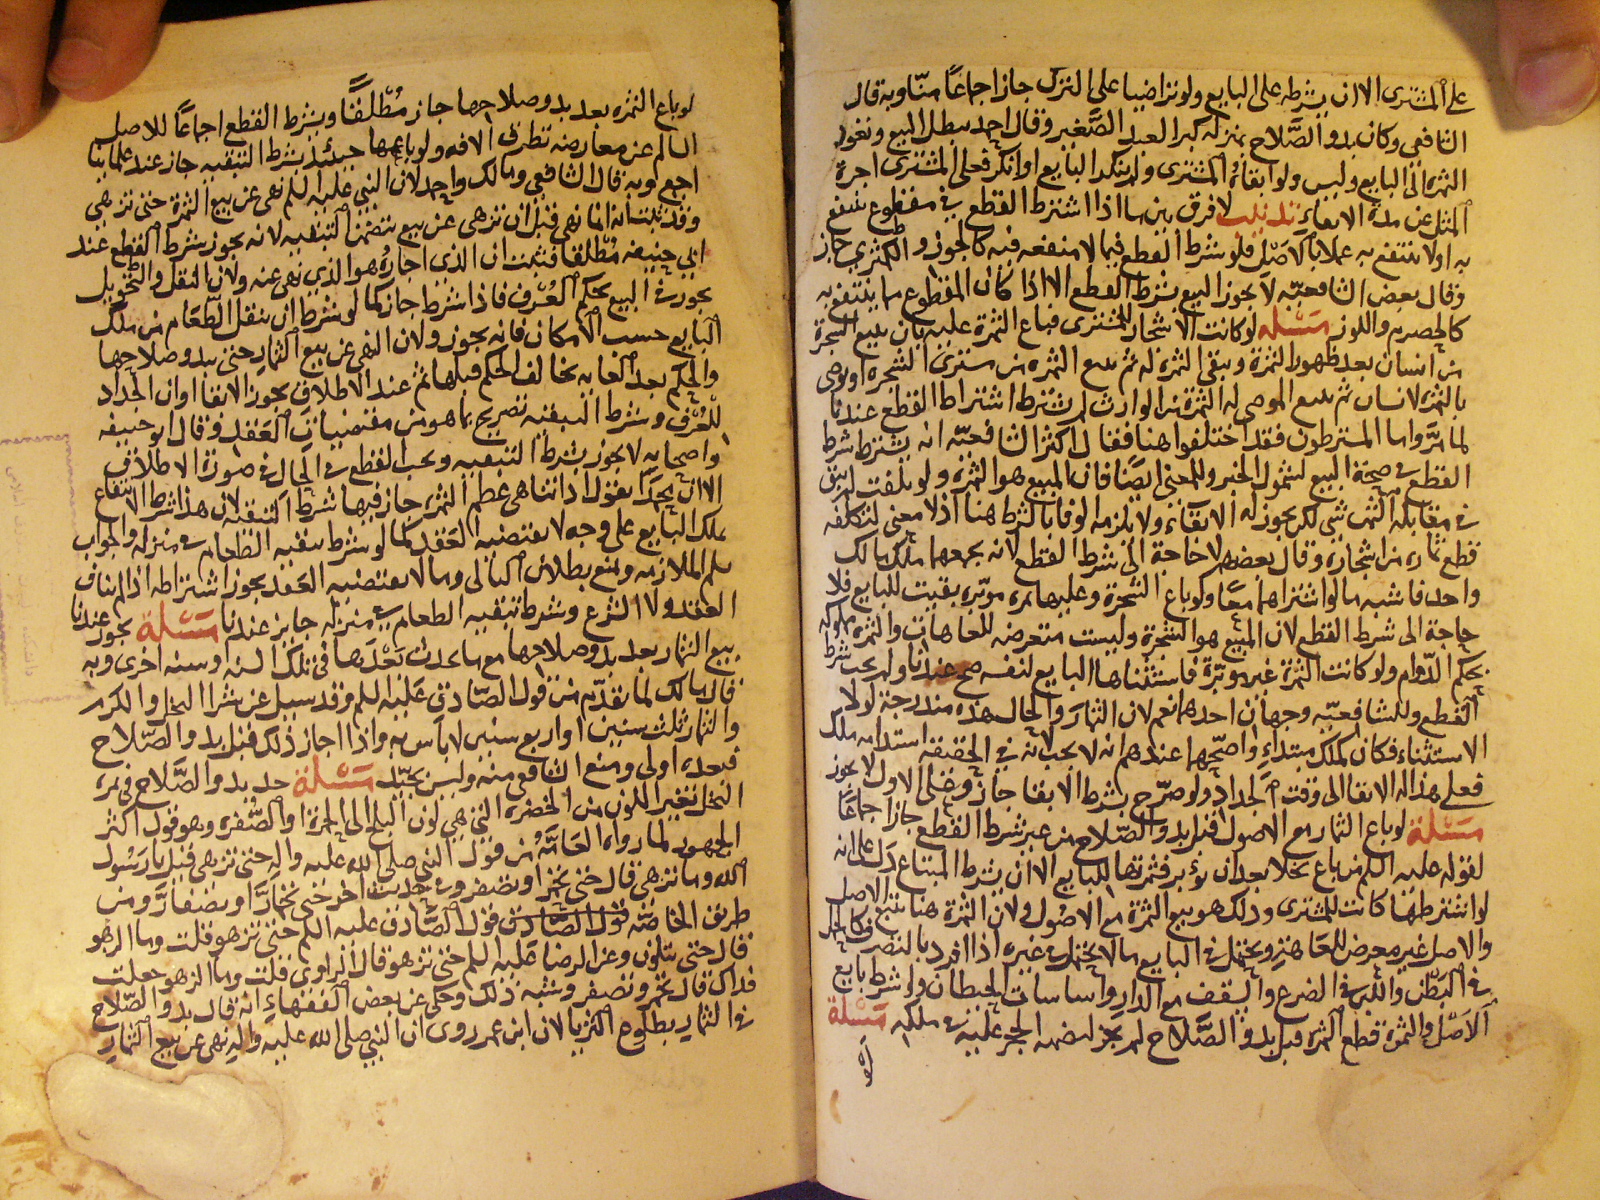 على المشترى الا ان يشرطه على البايع ولو تراضيا على الترك جاز اجماعًا منّا وبه قال
الشافعى وكان بدو الصَّلاح بمنزلة كبر العبد الصَّغير وقال احمد يبطل البيع وتعود
الثمرة الى البايع وليس ولو ابقاها المشترى ولم ينكر البايع او انكر فعلى المشترى اجرة
المثل عن مدة الابقاء تذنيب لا فرق بين ما اذا اشترط القطع فى مقطوع ينتفع
به او لا ينتفع به عملا بالاصل فلو شرط القطع فيما لا منفعه فيه كالجوز والكمثرى جاز
وقال بعض الشافعيّه لا يجوز البيع بشرط القطع الا اذا كان المقطوع مما ينتفع به
كالحصرم واللوز مسئله لو كانت الاشجار للمشترى فباع الثمرة عليه بان يبيع الشجرة
من انسان بعد ظهور الثمرة ويبقى الثمرة له ثم يبيع الثمره من مشترى الشجره او يوصى
بالثمرة لانسان ثم يبيع الموصى له الثمرة من الوارث لم يشترط اشتراط القطع عندنا
لما مرّ واما المشترطون فقد اختلفوا هنا فقال اكثر الشافعيّه انه يشترط شرط
القطع فى صحة البيع لشمول الخبر والمعنى ايضا فان المبيع هو الثمرة ولو تلفت لم يبق
فى مقابلة الثمن شئ لكن يجوز له الابقاء ولا يلزمه الوفا بالشرط هنا اذ لا معنى لتكلفه
قطع ثماره من اشجاره وقال بعضهم لا حاجة الى شرط القطع لانه يجمعهما ملك مالك
واحد فاشبه ما لو اشتراهما معًا ولو باع الشجرة وعليها ثمره مؤبّره بقيت للبايع فلا
حاجة الى شرط القطع لان المبيع هو الشجرة وليست متعرضه للعاهات والثمرة مملوكه
بحكم الدّوام ولو كانت الثمرة غير مؤبّرة فاستثناها البايع لنفسه صح عندنا ولم يجب شرط
القطع وللشافعيّه وجهان احدهما نعم لان الثمار والحال هذه مندرجة لولا
الاستثناء فكان كملك مبتداء واصحّهما عندهم انه لا يجب لانه فى الحقيقه استدامه ملك
فعلى هذا له الابقا الى وقت الجداد ولو صرّح بشرط الابقا جاز وعلى الاول لا يجوز
مسئلة لو باع الثمار مع الاصول قبل بدو الصّلاح من غير شرط القطع جاز اجماعًا
لقوله عليه السلم من باع نخلا بعد ان يؤبر فثمرتها للبايع الا ان يشترط المبتاع دل على انه
لو اشترطها كانت للمشترى وذلك هو بيع الثمرة مع الاصول ولان الثمرة هنا يتبع الاصل
والاصل غير معرض للعاهة ويحتمل فى البايع ما لا يحتمل فى غيره اذا افرد بالتصرف كالحمل
فى البطن واللبن فى الضرع والسقف مع الدار واساسات الحيطان ولو شرط بايع
الاصل والثمرة قطع الثمرة قبل بدو الصَّلاح لم يجز لتضمنه الحجر عليه فى ملكه مسئلة
لو
لو باع الثمره بعد بدو صلاحها جاز مُطلقًا وبشرط القطع اجماعًا للاصل
السالم عن معارضة تطرق الافه ولو باعها حينئذ بشرط التبقيه جاز عند علمائنا
اجمع وبه قال الشافعى ومالك واحمد لان النبى عليه السلم نهى عن بيع الثمرة حتى تزهى
وقد ثبت انه انما نهى قبل ان تزهى عن بيع يتضمن التبقيه لانه يجوز بشرط القطع عند
ابى حنيفه مُطلقا فثبت ان الذى اجازه هو الذى نهى عنه ولان النقل والتحويل
يجوز فى البيع بحكم العُرف فاذا شرط جاز كما لو شرط ان ينقل الطّعام من ملك
البايع حسب الامكان فانه يجوز ولان النهى عن بيع الثمار حتى يبدو صلاحها
والحكم بعد الغايه يخالف الحكم قبلها ثم عند الاطلاق يجوز الابقا اوان الجداد
للعُرف وشرط التبقيه تصريح بما هو من مقتضيات العَقد وقال ابو حنيفه
واصحابه لا يجوز بشرط التبقيه ويجب القطع فى الحال فى صورة الاطلاق
الا ان محمّدا يقول اذا تناهى عظم الثمرة جاز فيها شرط التبقيه لان هذا شرط الانتفاع
بملك البايع على وجه لا يقتضيه العَقد كما لو شرط تبقيه الطعام فى منزله والجواب
بمنع الملازمه ومنع بطلان التالى وما لا يقتضيه العَقد يجوز اشتراطه اذا لم يناف
العقد ولا الشرع وشرط تبقيه الطعام فى منزله جايز عندنا مسئلة يجوز عندنا
بيع الثمار بعد بدو صلاحها مع ما يحدث بَعْدَها فى تلك السنه وسنه اخرى وبه
قال مالك لما تقدّم من قول الصّادق عليه السلم وقد سيل عن شرا النخل والكرم
والثمار ثلث سنين او اربع سنين لا باس به واذا اجاز ذلك قبل بدو الصّلاح
فبعده اولى ومنع الشافعى منه وليس بجيّد مسئلة حد بدو الصَّلاح فى ثمره
النخل تغير اللون من الخضره التى هى لون البلح الى الحمرة او الصُّفره وهو قول اكثر
الجمهور لما رواه العامّة من قول النبى صلى الله عليه واله حتى تزهى قيل يا رسُول
الله وما تزهى قال حتى تحمر او تصفر وفى حديث اخر حتى تحمارّ او تصفارّ ومن
طريق الخاصّه قول الصّادق قول الصّادق عليه السلم حتى تزهو قلت وما الزهو
قال حتى يتلون وعن الرضا عليه السلم حتى تزهو قال الراوى قلت وما الزهو جعلت
فداك قال تحمر وتصفر وشبه ذلك وحكى عن بعض الفقهاء انه قال بدو الصّلاح
فى الثمار بطلوع الثريا لان ابن عمر روى ان النبى صلى الله عليه واله نهى عن بيع الثمار